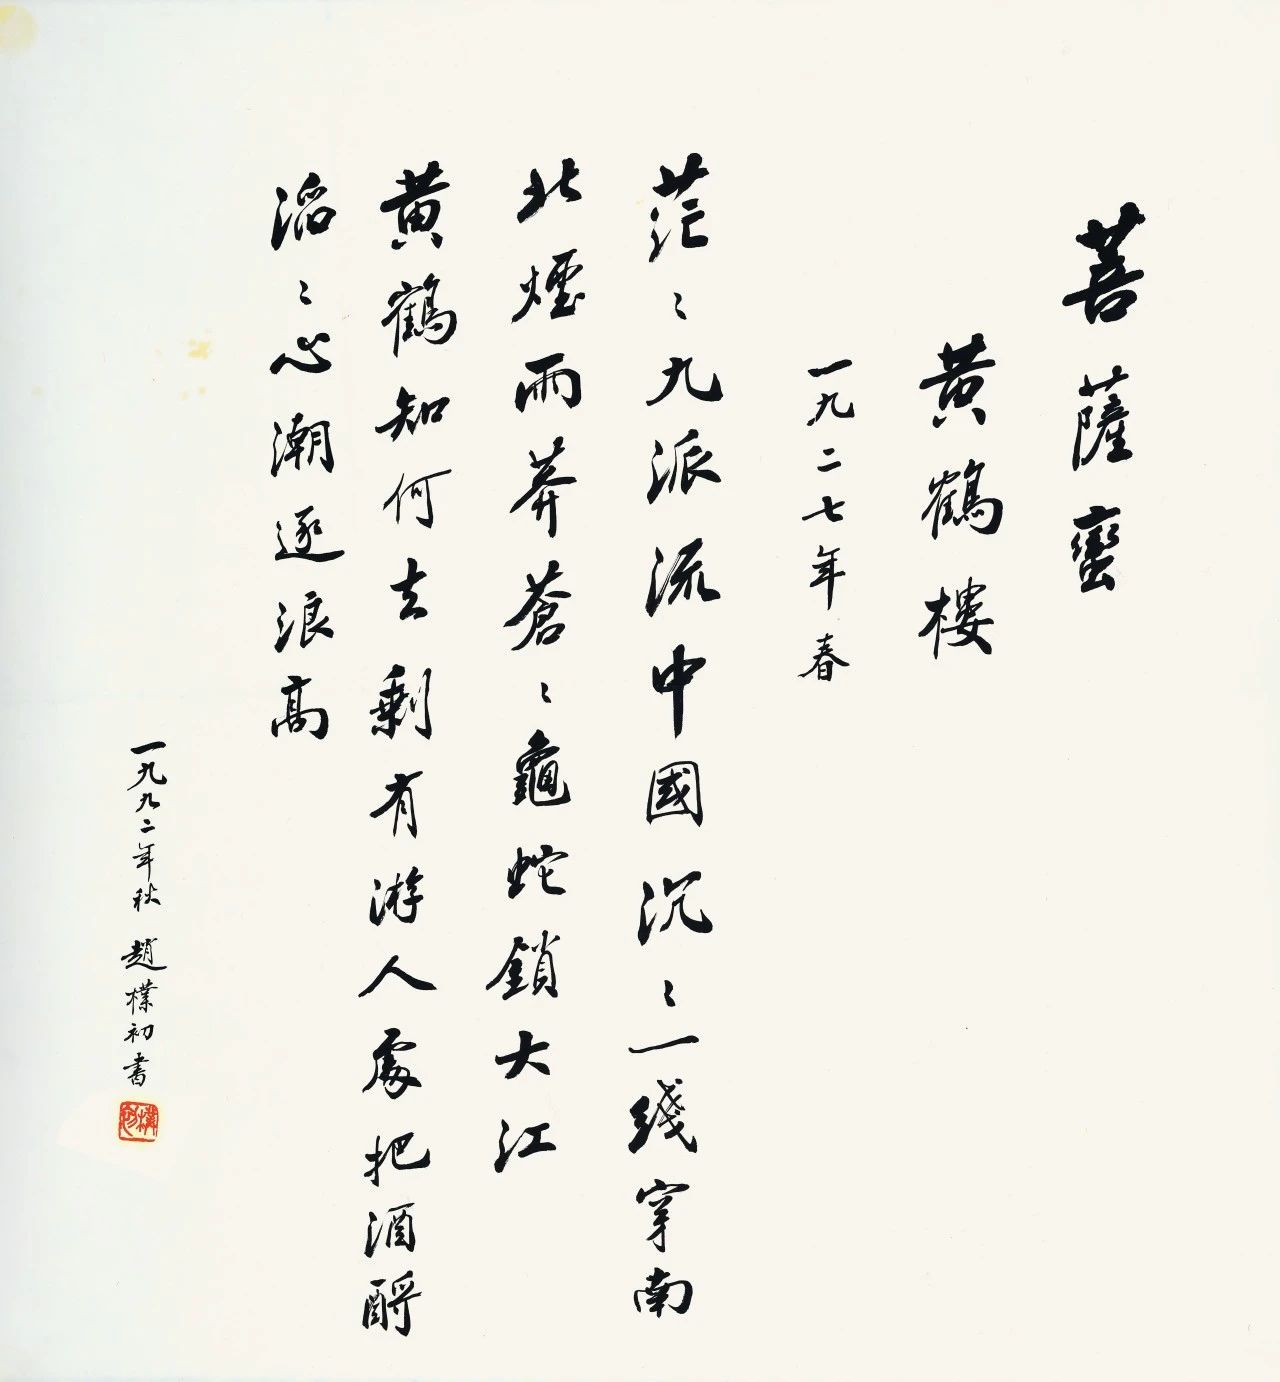 菩薩蠻
黄鶴樓
一九二七年春
茫〻九派流中國沉〻一綫穿南
北煙雨莽蒼〻龜蛇鎖大江
黄鶴知何去剩有游人處把酒酹
滔〻心潮逐浪高
一九九二年秋 趙樸初書
樸初